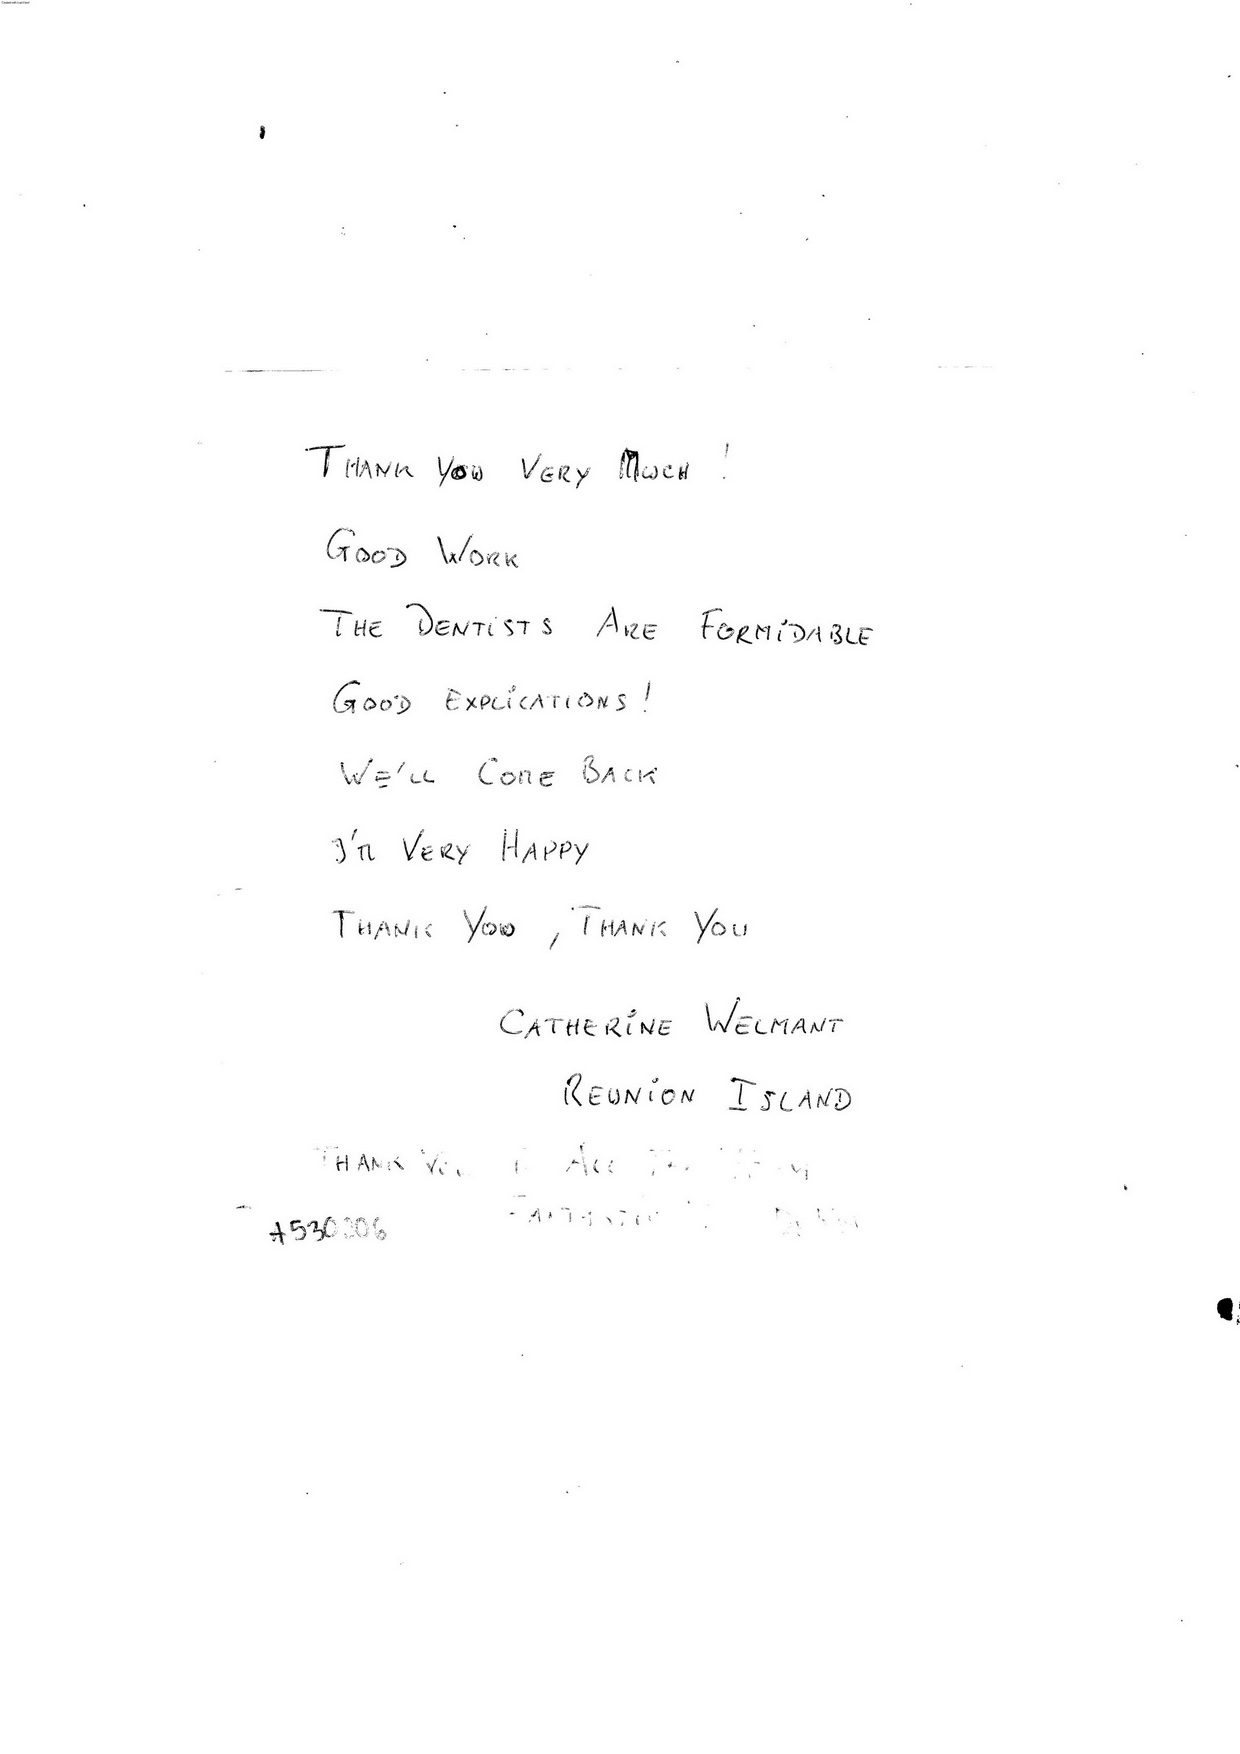 THANK YOU VERY MUCH !
GOOD WORK
THE DENTISTS ARE FORMIDABLE
GOOD EXPLICATIONS !
WE'LL COME BACK
I'M VERY HAPPY
THANK YOU , THANK YOU
CATHERINE WELMANT
REUNION ISLAND
THANK YOU ALL